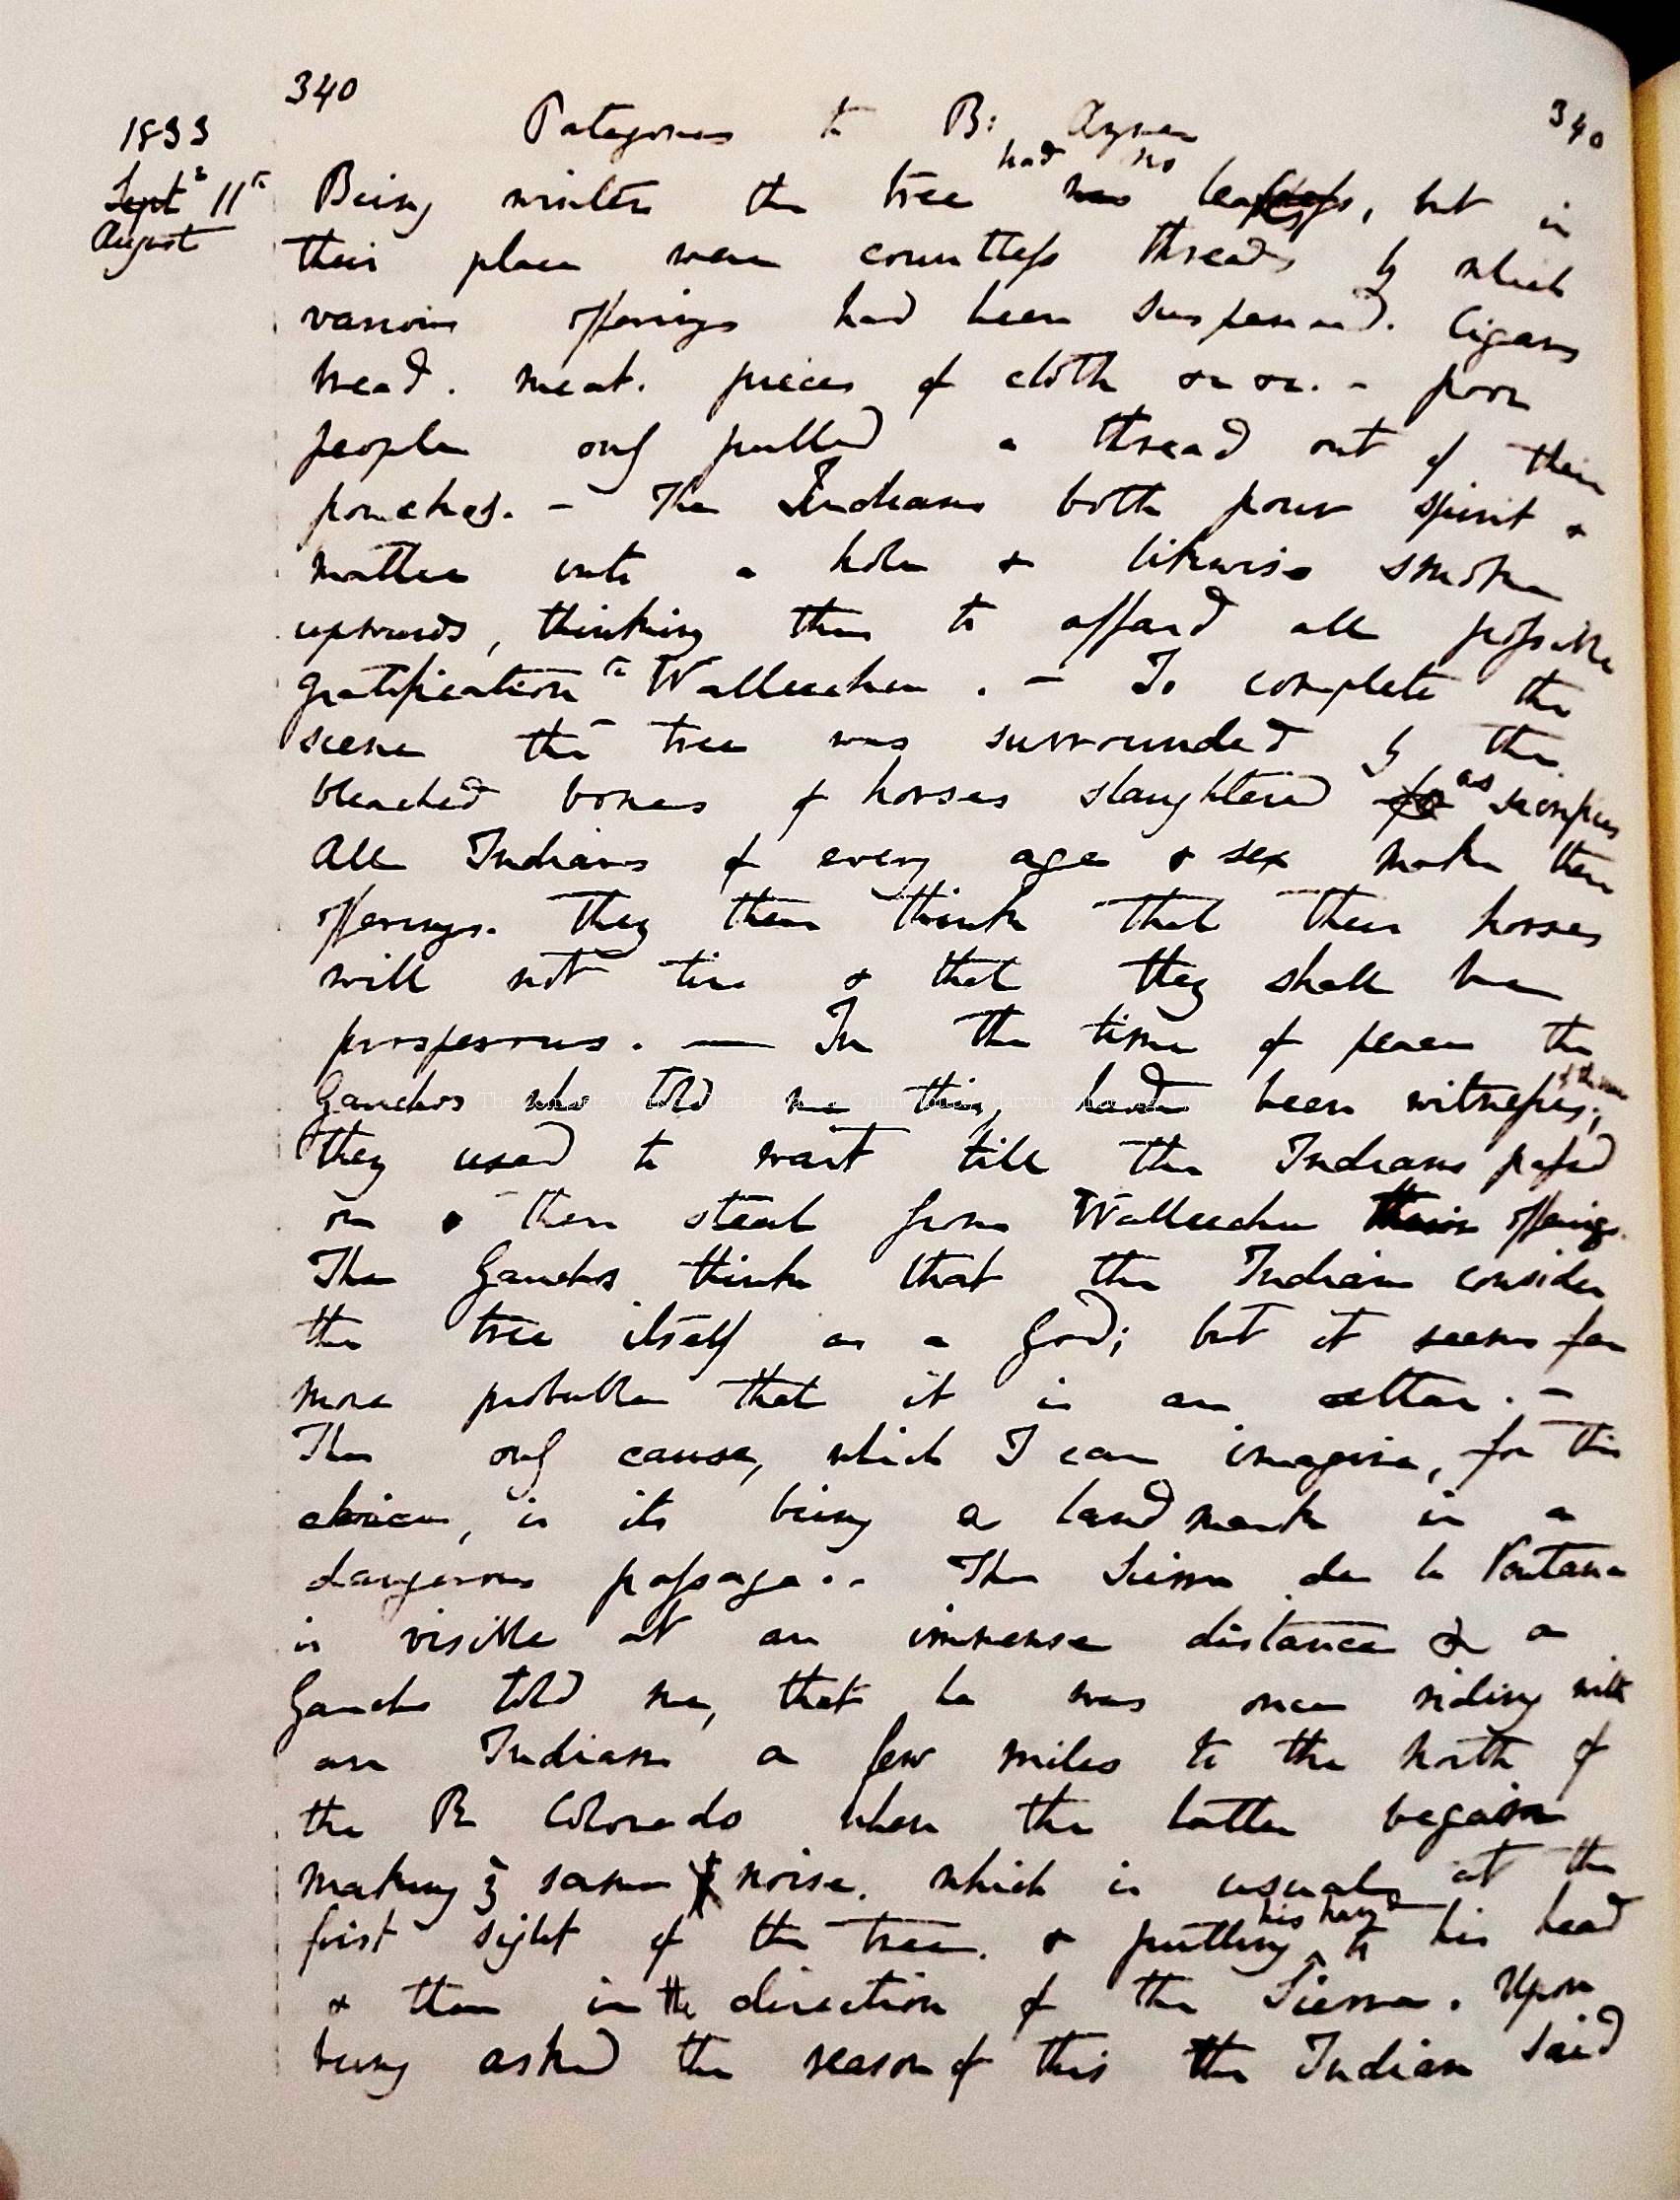 340
340
Patagones to B: Ayres
1833
Sept^r 11^th
August
had no
Being winter the tree was leafless, but in
their place were countless threads by which
various offerings had been suspended. Cigars
bread. meat. pieces of cloth &c &c. - poor
people only pulled a thread out of their
ponchos. - The Indians both pour spirit &
mattee into a hole & likewise smoke
upwards, thinking thus to afford all possible
gratification to Walleechu. - To complete the
scene the tree was surrounded by the
bleached bones of horses slaughtered for as sacrifices
All Indians of every age & sex make their
offerings. They then think that their horses
will not tire & that they shall be
prosperous. — In the time of peace the
of the scene
Gauchos who told me this, had been witnesses;
they used to wait till the Indians passed
on & then steal from Walleechu their offerings.
The Gauchos think that the Indians consider
the tree itself as a God; but it seems far
more probable that it is an altar. -
The only cause, which I can imagine, for this
choice, is its being a land mark in a
dangerous passage. - The Sierra de la Ventana
is visible at an immense distance & a
Gaucho told me, that he was once riding with
an Indian a few miles to the North of
the R Colorado when the latter began
making same noise. which is usual at the
his hand
first sight of the tree. & putting to his head
& then in the direction of the Sierra. Upon
being asked the reason of this the Indian said
The Complete Work of Charles Darwin Online